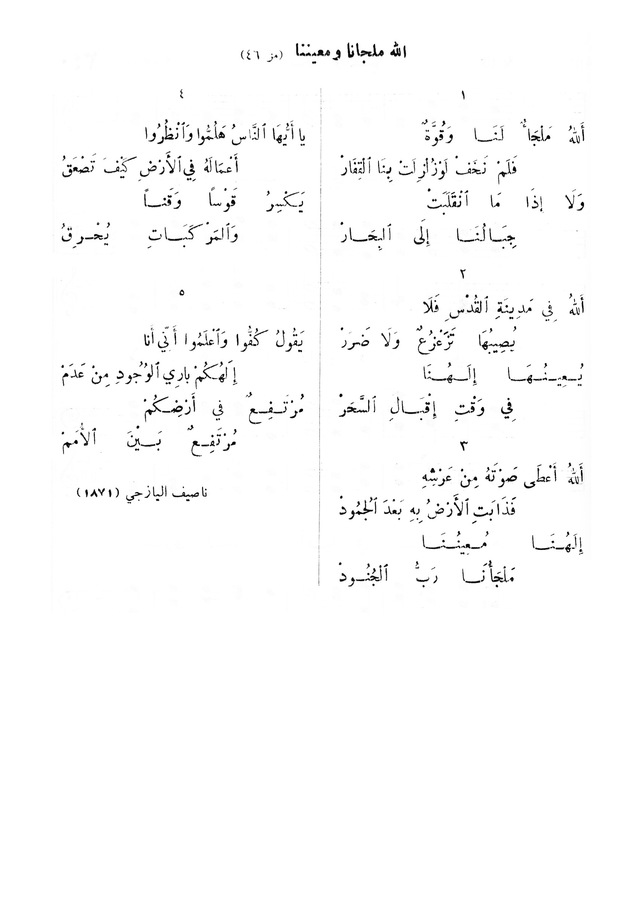 الله ملجانا ومعيننا (مز ٤٦)
١
أَللهُ مَلْجَاٌ لَنَا وَقُوَّةٌ
فَلَمْ نَخَفْ لَوْ زُلْزِلَتْ بِنَا الْقِفَارْ
وَلَا إِذَا مَا انْقَلَبَتْ
جِبَالُنَا إِلَى الْبِحَارْ
٢
أَللهُ فِي مَدِينَةِ الْقُدْسِ فَلَا
يُصِيبُهَا تَزَعْزُعٌ وَلَا ضَرَرْ
يُعِينُهَا إِلٰهُنَا
فِي وَقْتِ إِقْبَالِ السَّحَرْ
٣
أَللهُ أَعْطَى صَوْتَهُ مِنْ عَرْشِهِ
فَذَابَتِ الْأَرْضُ بِهِ بَعْدَ الْجُمُودْ
إِلٰهُنَا مُعِينُنَا
مَلْجَأُنَا رَبُّ الْجُنُودْ
٤
يا أَيُّهَا النَّاسُ هَلُمُّوا وَانْظُرُوا
أَعْمَالَهُ فِي الْأَرْضِ كَيْفَ تَصْعَقُ
يَكْسِرُ قَوْسًا وَقَنًا
وَالمَرْكَبَاتِ يُحْرِقُ
٥
يَقُولُ كُفُّوا وَاعْلَمُوا أَنِّي أَنا
إِلٰهُكُمْ بارِي الْوُجُودِ مِنْ عَدَمْ
مُرْتَفِعٌ فِي أَرْضِكُمْ
مُرْتَفِعٌ بَيْنَ الْأُمَمْ
ناصيف اليازجي (١٨٧١)